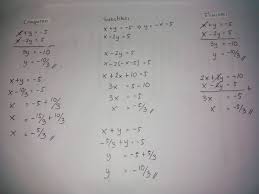 x + y = -5
x - 2y = 5
3y = -10
y = -10/3 //
x + y = -5
x - 10/3 = -5
x = -5 + 10/3
x = -15/3 + 10/3
x = -5/3 //
Substitusi
x + y = -5 → y = -x - 5
x - 2y = 5
x - 2y = 5
x - 2(-x - 5) = 5
x + 2x + 10 = 5
3x = 5 - 10
x = -5/3 //
x + y = -5
-5/3 + y = -5
y = -5 + 5/3
y = -10/3 //
Eliminasi
x + y = -5
x - 2y = 5
3y = -10
y = -10/3 //
2x + 2y = -10
x - 2y = 5 +
3x = -5
x = -5/3 //